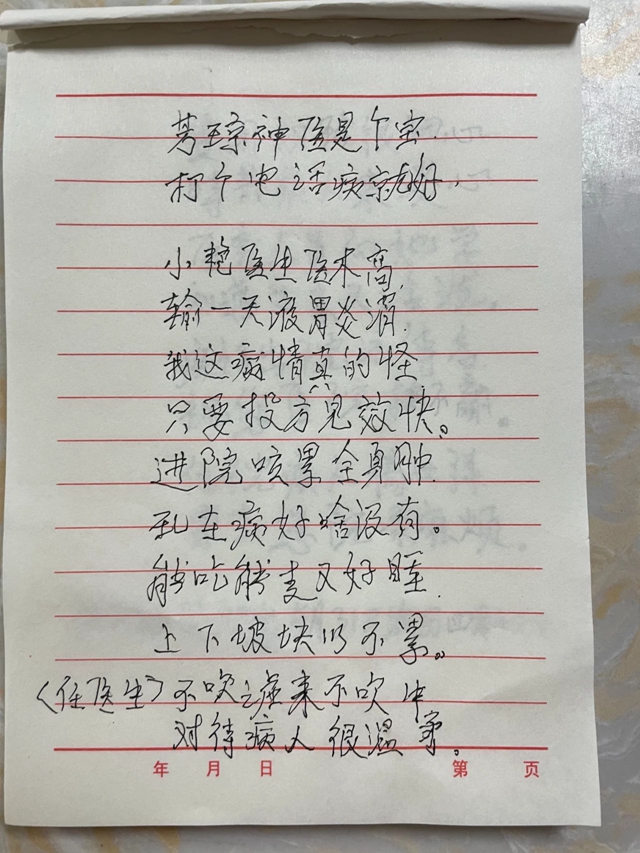 芳琼神医是个宝.
打个电话病就好,
小艳医生医术高,
输一天液胃炎消.
我这病情真的怪
只要投方见效快。
进院咳累全身肿.
现在病好啥没有。
能吃能走又好睡.
上下坡坎仍不累。
(任医生)不吹嘘来不吹牛
对待病人很温柔。
年 月 日 第 页